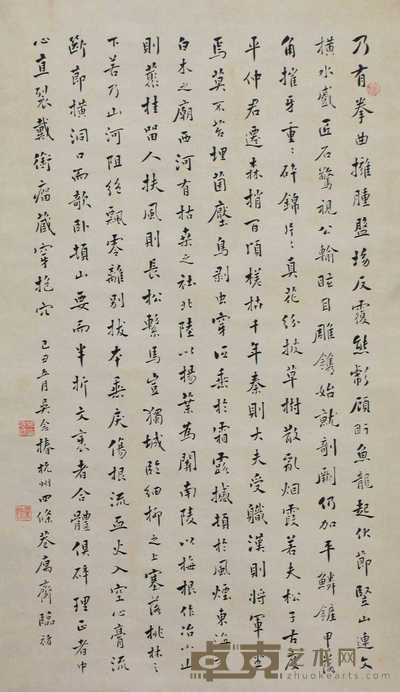 乃有拳曲擁腫盤坳反覆熊彪顧盼魚龍起伏節豎山連文
橫水蹙匠石驚視公輸眩目雕鐫始就剞劂仍加平鱗鏟甲落
角摧牙重々碎錦片々真花紛披草樹散亂烟霞若夫松子古度
平仲君遷森梢百頃槎枯千年秦則大夫受職漢則將軍坐
焉莫不苔埋菌壓鳥剥虫穿低垂於霜露撼頓於風煙東海有
白木之廟西河有枯桑之社北陸以楊葉為關南陵以梅根作冶小山
則叢桂留人扶風則長松繫馬豈獨城臨細柳之上塞落桃林之
下若乃山河阻絕飄零離別拔本垂淚傷根流血火入空心膏流
斷節橫洞口而欹臥頓山要而半折文衺者合體俱碎理正者中
心直裂戴銜瘤藏穿抱穴 己丑五月吳椿杭州四條巷寓齋臨褚
卓克艺术网
zhuokearts.com